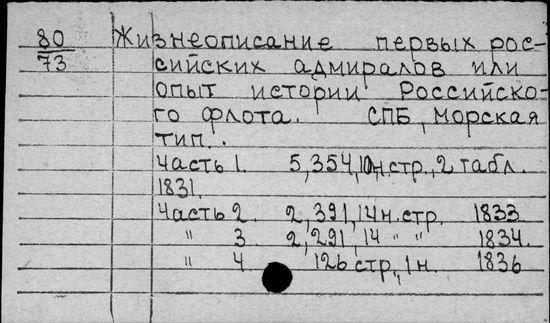 80 Жизнеописание первых рос-
73 сийских адмиралов или
опыт истории Российско-
го флота. СПБ, Морская
тип.
Часть 1. 5,354,10н.стр., 2 табл.
1831.
Часть 2. 2,391,14н.стр. 1833
" 3 2,291,14 " " 1834.
" 4. 126 стр., 1н. 1836